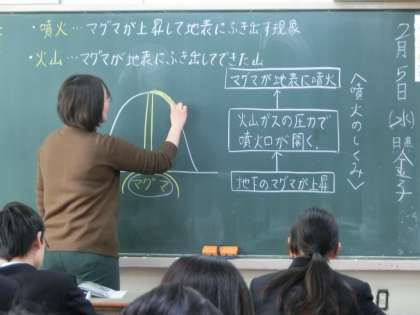 ・噴火…マグマが上昇して地表にふき出す現象
・火山…マグマが地表にふき出してできた山
マグマ
マグマが地表に噴火
火山ガスの圧力で
噴火口が開く.
地下のマグマが上昇
〈噴火のしくみ〉
2月5日(水)
日直
金子